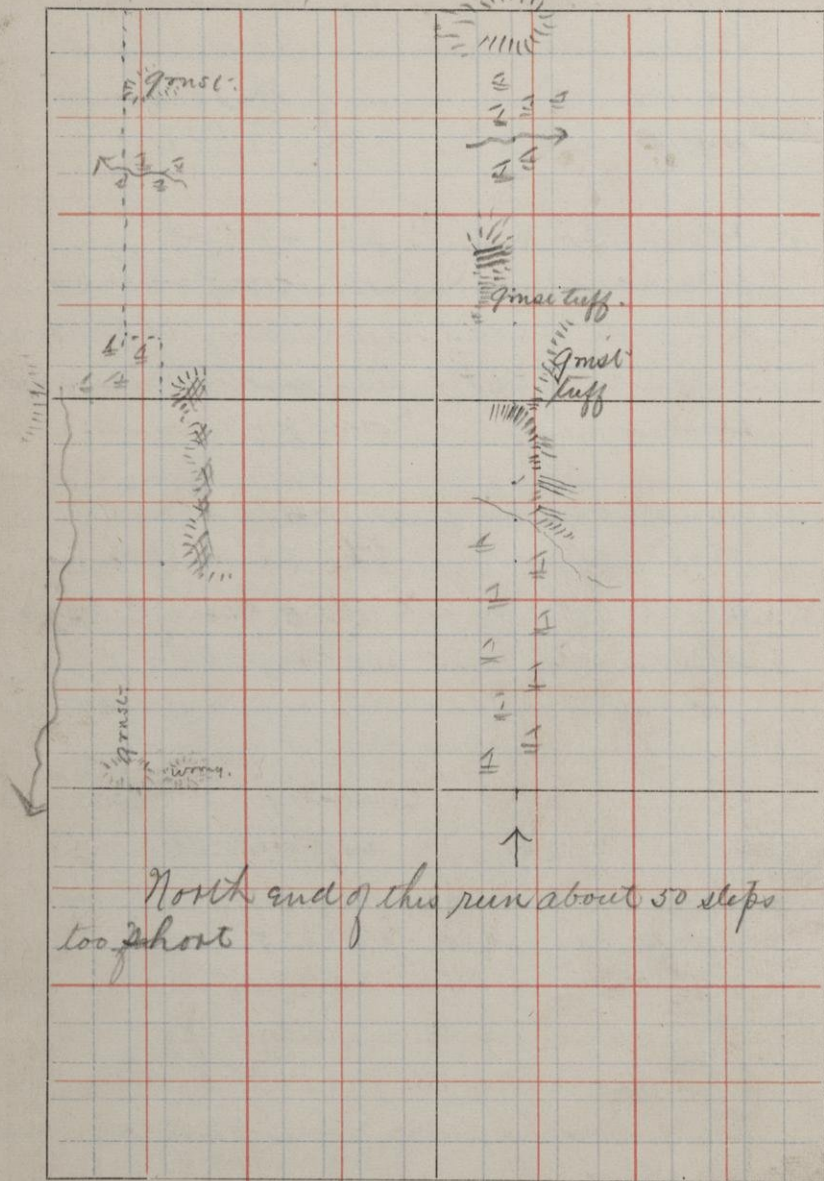 grnst.
grnst tuff.
grnst
tuff
grnst.
North end of this run about 50 steps
too short